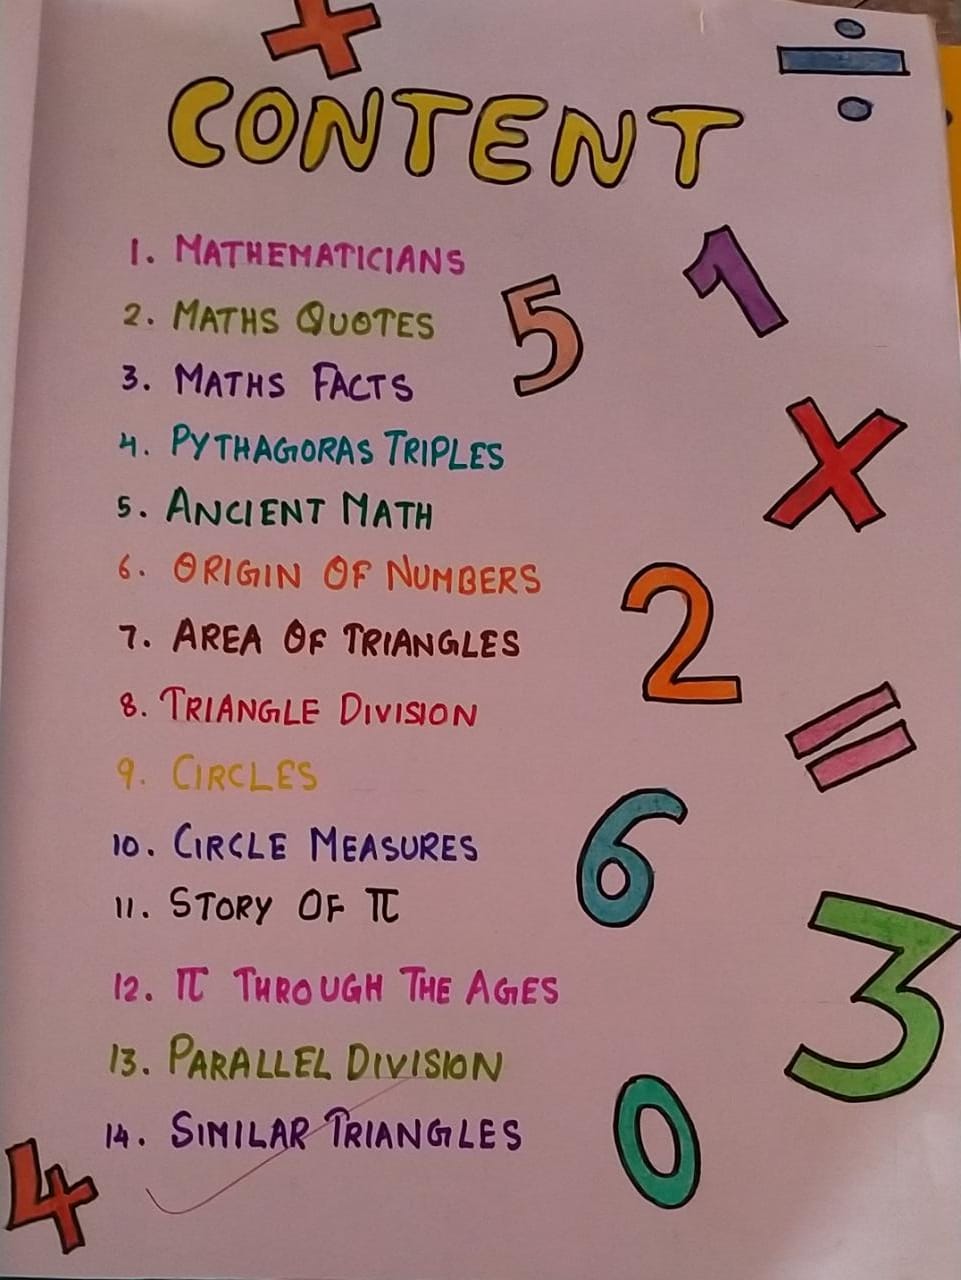 +
÷
CONTENT
1. MATHEMATICIANS
1
2. MATHS QUOTES
5
3. MATHS FACTS
4. PYTHAGORAS TRIPLES
×
5. ANCIENT MATH
6. ORIGIN OF NUMBERS
7. AREA OF TRIANGLES
2
8. TRIANGLE DIVISION
=
9. CIRCLES
10. CIRCLE MEASURES
6
11. STORY OF π
12. π THROUGH THE AGES
3
13. PARALLEL DIVISION
14. SIMILAR TRIANGLES
0
4